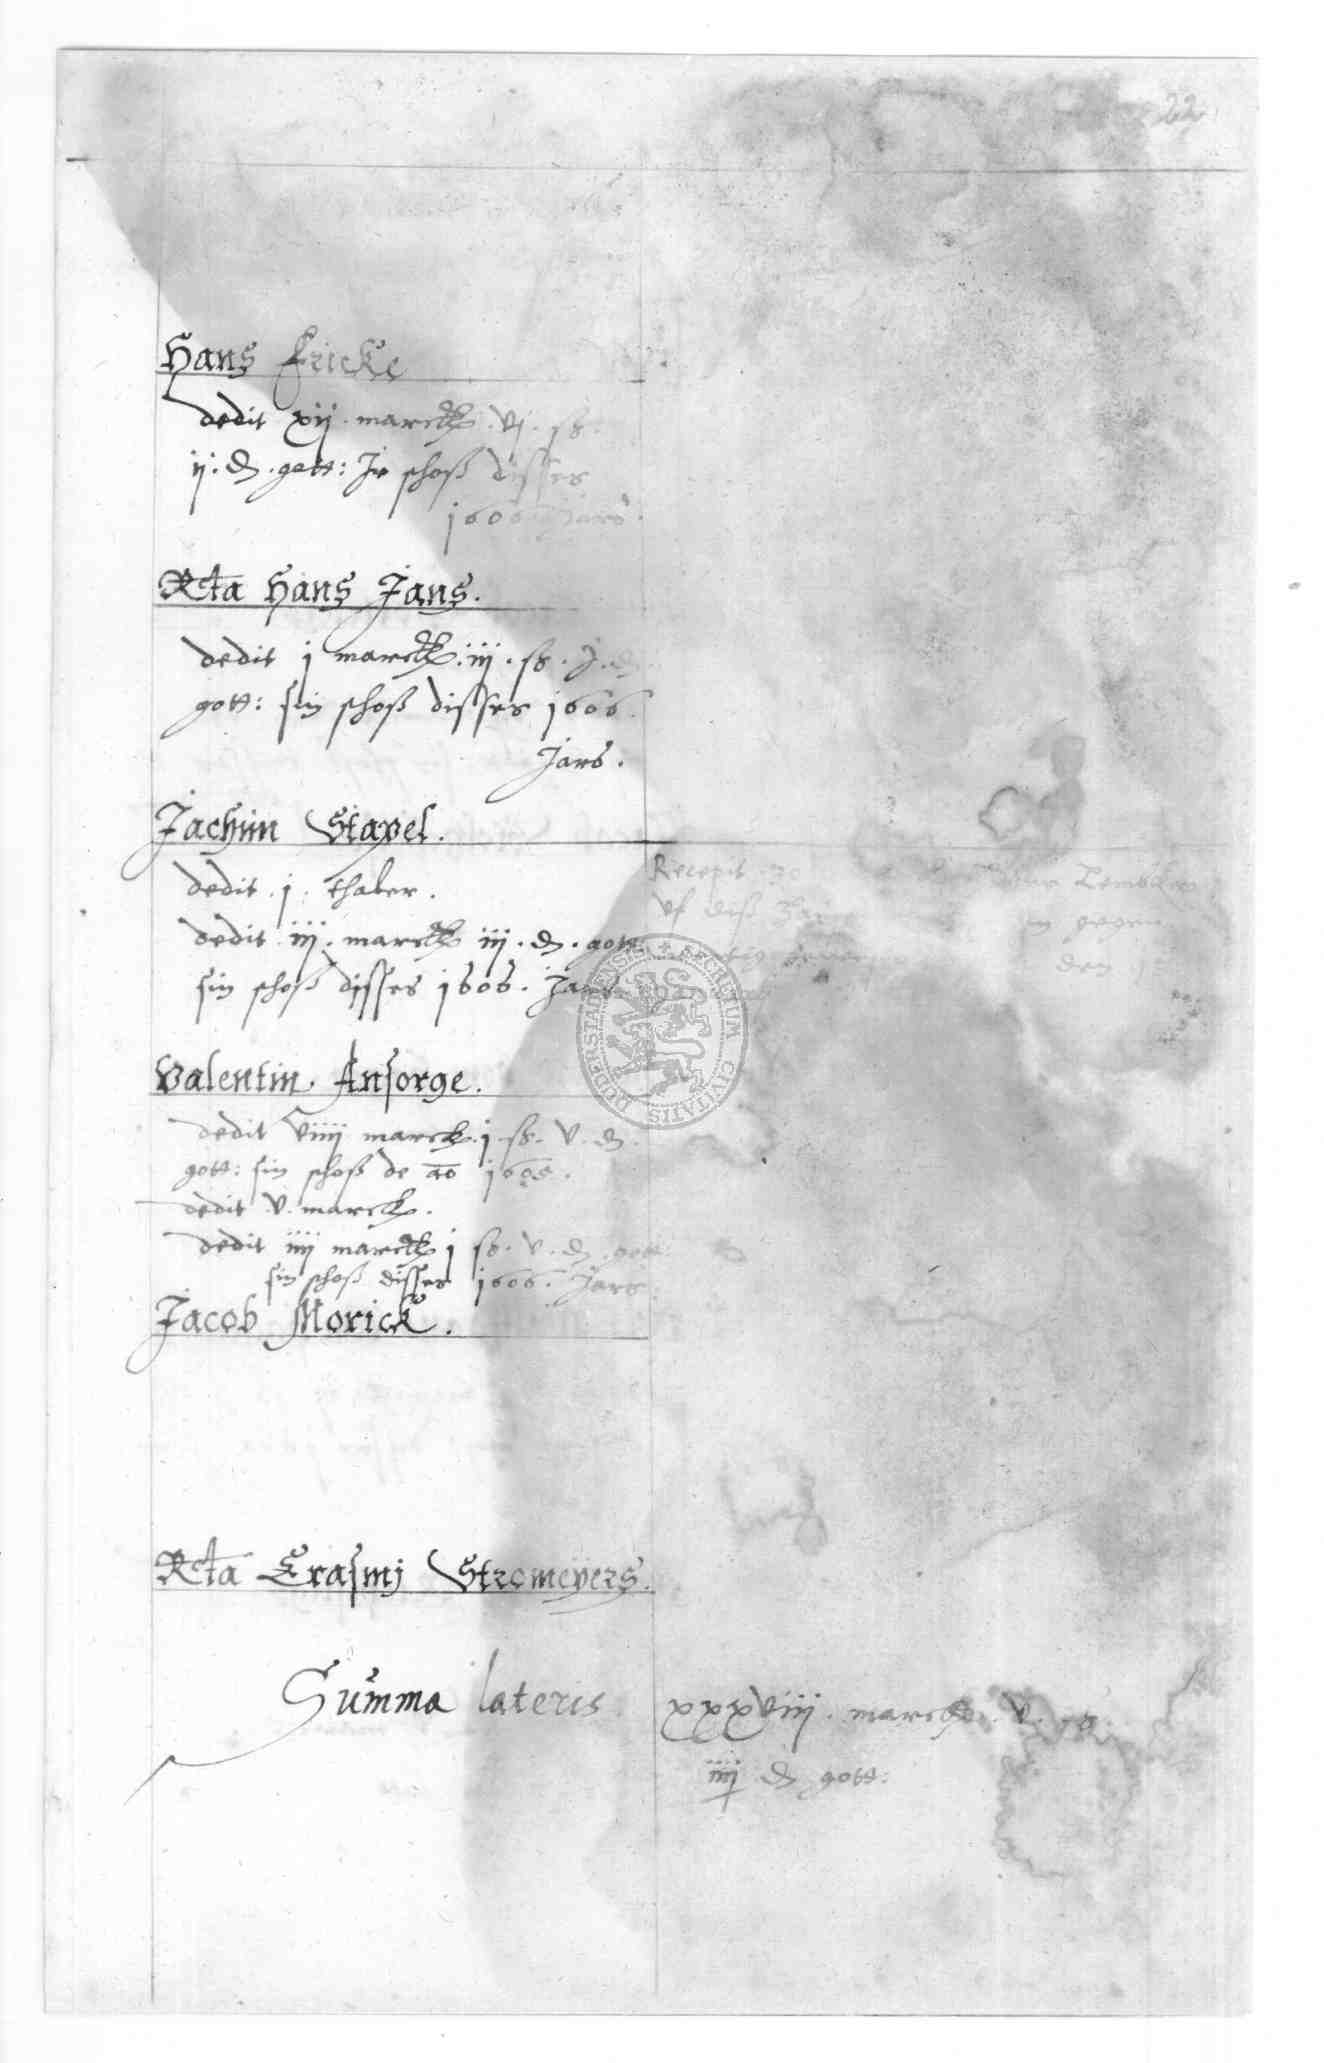 22
Hans Fricke
dedit xij . marck . vj . ß .
ij . d . gott : Ir schoß disses
1606 Jars .
Rcta Hans Jans .
dedit j marck . iij . ß . j . d
gott : sin schoß disses 1606 .
Jars .
Jachim Stapel .
dedit . j . thaler .
dedit . iij . marck iij . d . gott
sin schoß disses 1606 . Jars
Recepit
vf diß
den
SECRETUM CIVITATIS DUDERSTADENSIS
Valentin Ansorge .
dedit viiij marck . j . ß . v . d .
gott : sin schoß de ao 1605 .
dedit . v . marck .
dedit iiij marck j ß . v . d . gott
sin schoß disses 1606 . Jars
Jacob Morick .
Rcta Erasmj Stromeyers .
Summa lateris xxxviij . marck . v . ß .
iiij d gott :